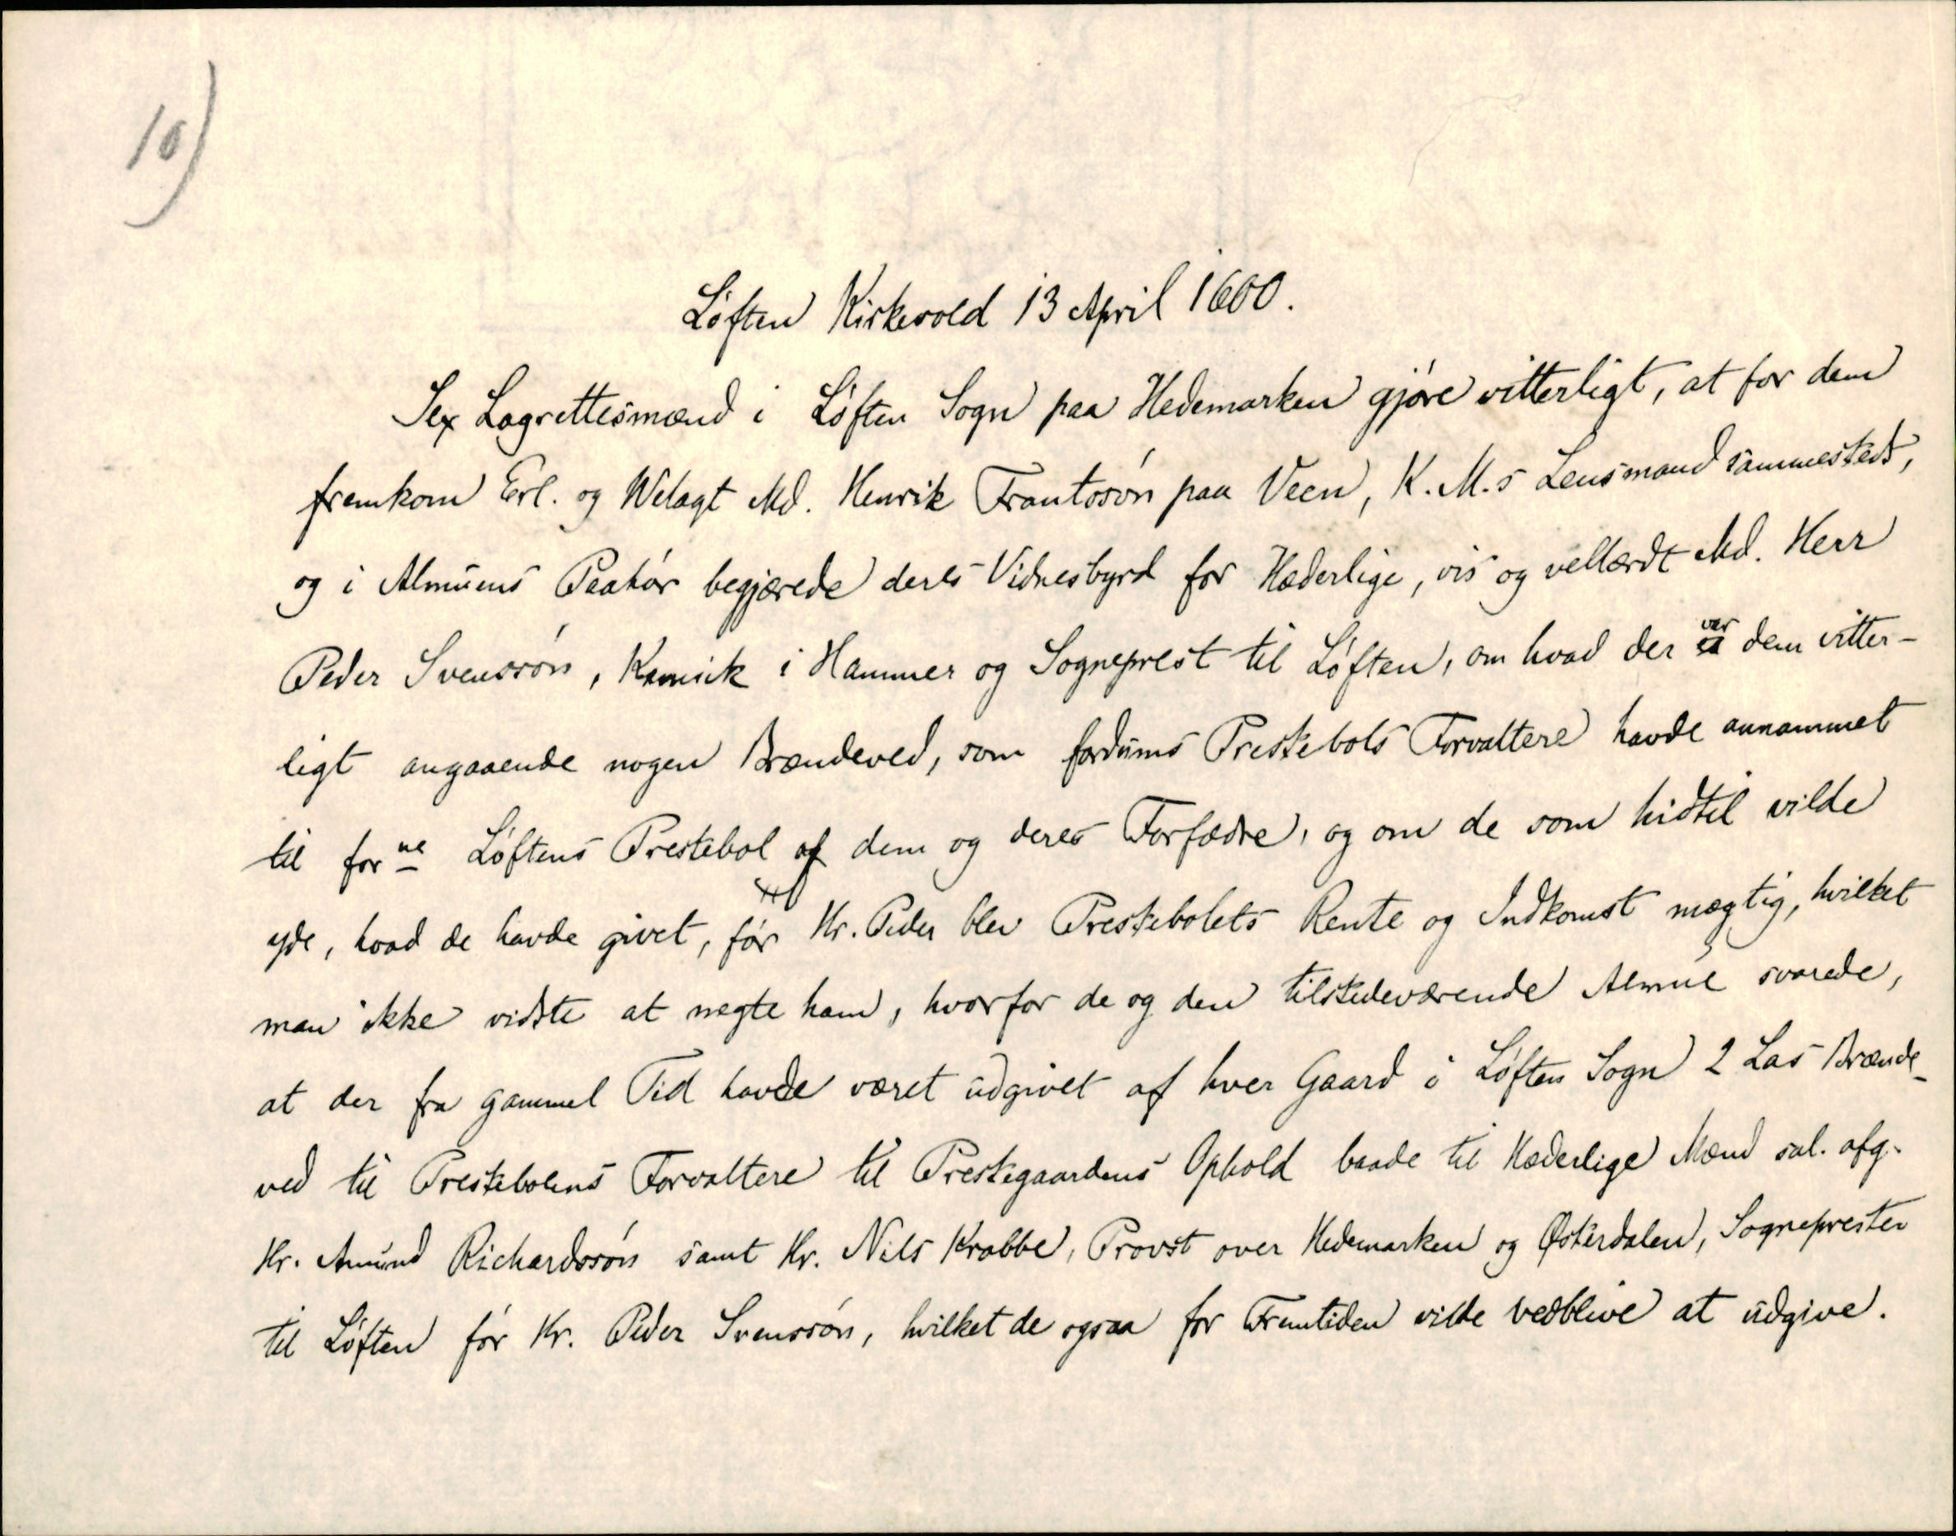 10)
Løften Kirkevold 13 April 1600.
Sex Lagrettesmænd i Løften Sogn paa Hedemarken gjøre vitterligt, at for dem
fremkom Erl. og Welagt Md. Henrik Frantosøn paa Veen, K. M.s Lensmand sammesteds,
og i Almuens Paahør begjærede deres Vidnesbyrd for Hæderlige, vis og vellærdt Md. Herr
Peder Svenssøn, Kannik i Hammer og Sogneprest til Løften, om hvad der var dem vitter-
ligt angaaende nogen Brændeved, som fordums Prestebols Forvaltere havde annammet
til forne Løftens Prestebol af dem og deres Forfædre, og om de som hidtil vilde
yde, hvad de havde givet, før Hr. Peder blev Prestebolets Rente og Indkomst mægtig, hvilket
man ikke vidste at negte ham, hvorfor de og den tilstedeværende Almue svarede,
at der fra gammel Tid havde været udgivet af hver Gaard i Løften Sogn 2 Las Brænde-
ved til Prestebolens Forvaltere til Prestegaardens Ophold baade til Hæderlige Mænd sal. afg.
Hr. Amund Richardssøn samt Hr. Nils Krabbe, Provst over Hedemarken og Østerdalen, Sogneprester
til Løften før Hr. Peder Svenssøn, hvilket de ogsaa for Fremtiden vilde vedblive at udgive.